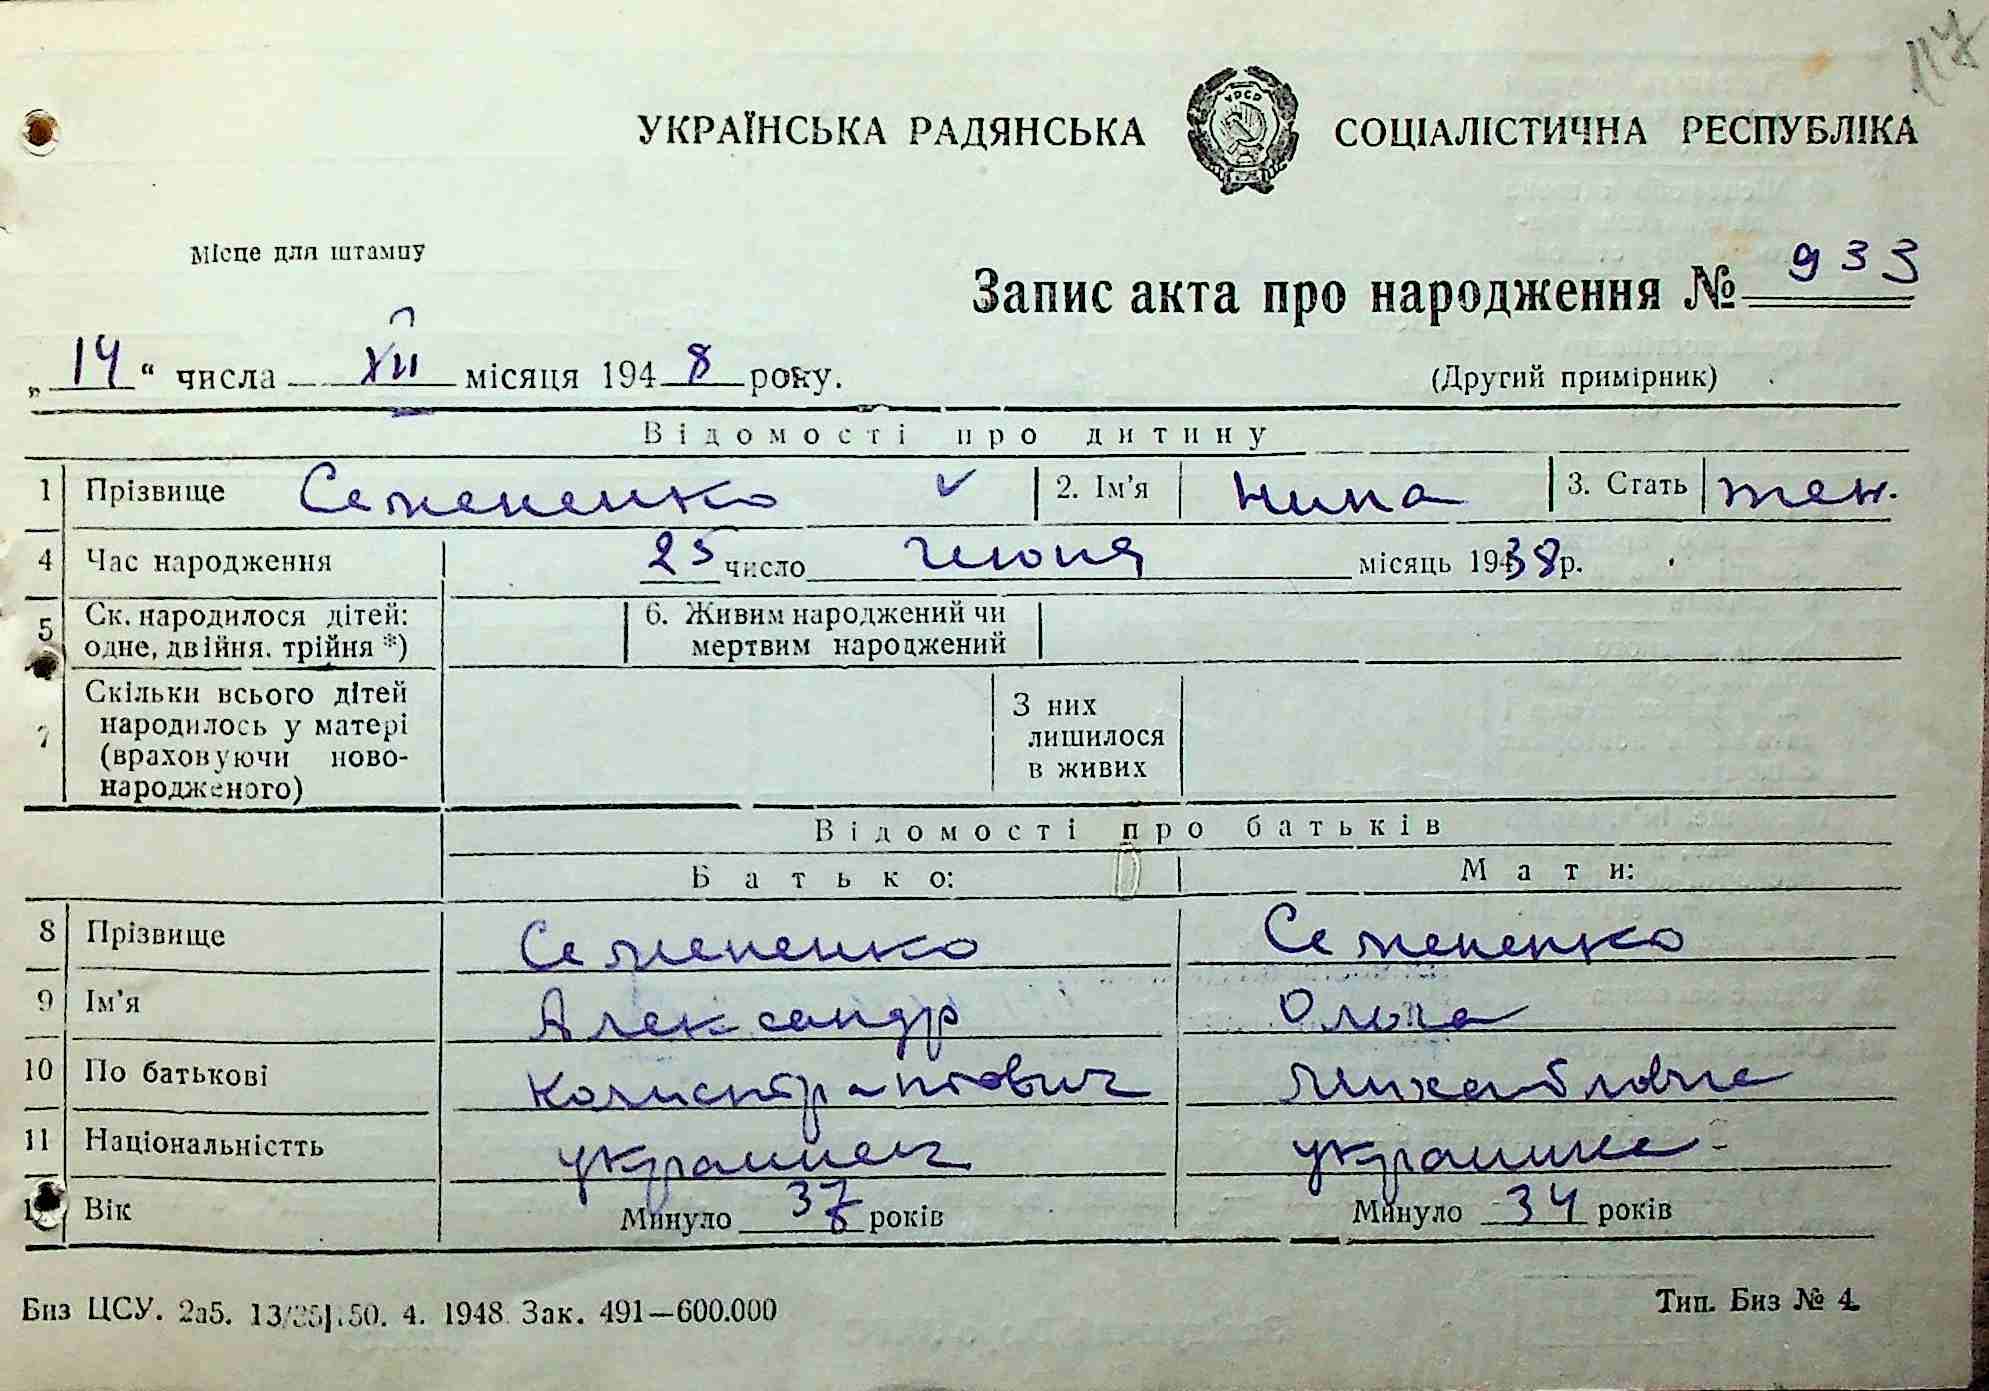 117
УКРАЇНСЬКА РАДЯНСЬКА СОЦІАЛІСТИЧНА РЕСПУБЛІКА
УРСР
Місце для штампу
Запис акта про народження № 933
„14“ числа XII місяця 1948 року.
(Другий примірник)
Відомості про дитину
1 Прізвище Семененко 2. Ім'я Нина 3. Стать жен.
4 Час народження 25 число июня місяць 1938 р.
5 Ск. народилося дітей: одне, двійня, трійня *) 6. Живим народжений чи мертвим народжений
7 Скільки всього дітей народилось у матері (враховуючи ново-народженого) З них лишилося в живих
Відомості про батьків
Батько: Мати:
8 Прізвище Семененко Семененко
9 Ім'я Александр Ольга
10 По батькові Калистратович Михайловна
11 Національністть украинец украинка
12 Вік Минуло 37 років Минуло 34 років
Биз ЦСУ. 2а5. 50. 4. 1948 Зак. 491—600.000
Тип. Биз № 4.